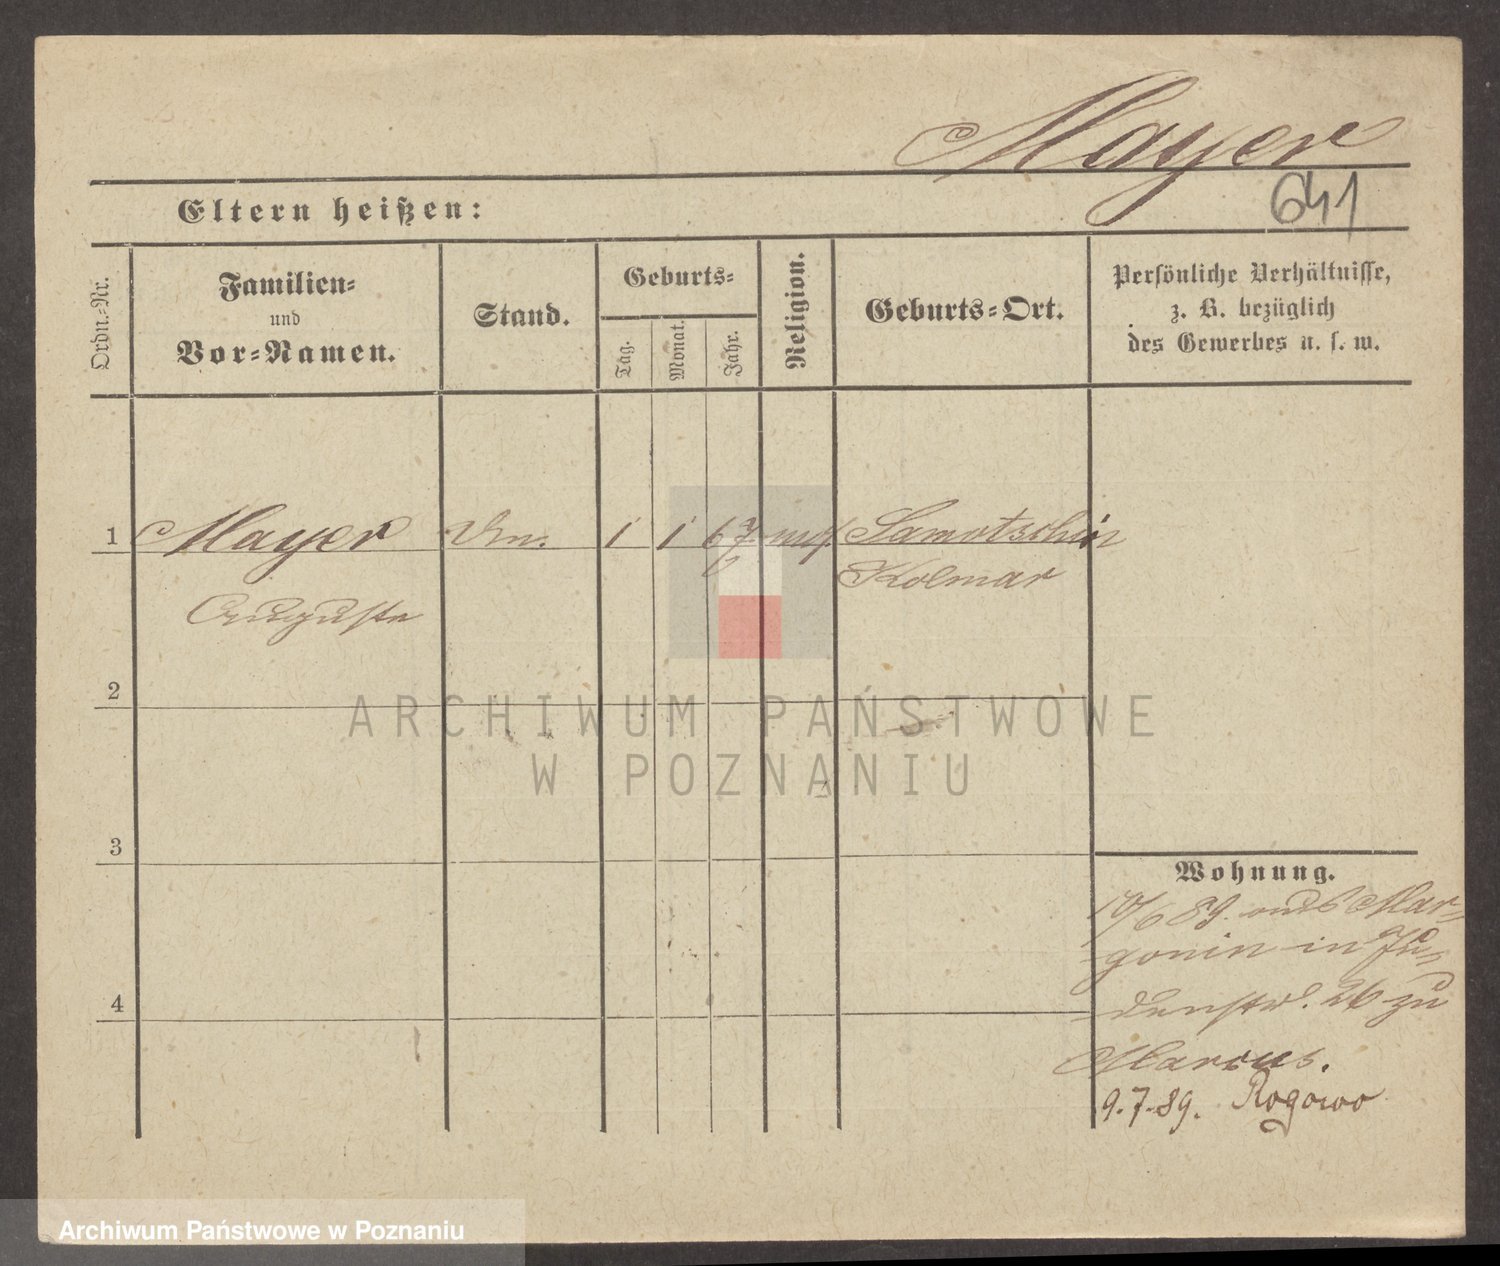 Mayer
641
Eltern heißen:
Ordn.-Nr.
Familien-
und
Vor-Namen.
Stand.
Geburts-
Tag.
Monat.
Jahr.
Religion.
Geburts-Ort.
Persönliche Verhältnisse,
z. B. bezüglich
des Gewerbes u. s. w.
1 Mayer 1 1 67 Samotschin
Kolmar
Auguste
2
3
4
Wohnung.
10/6 89. aus Mar-
gonin in Ju-
denstr. 26 zu
Marcus.
9.7.89. Rogowo
ARCHIWUM PAŃSTWOWE
W POZNANIU
Archiwum Państwowe w Poznaniu